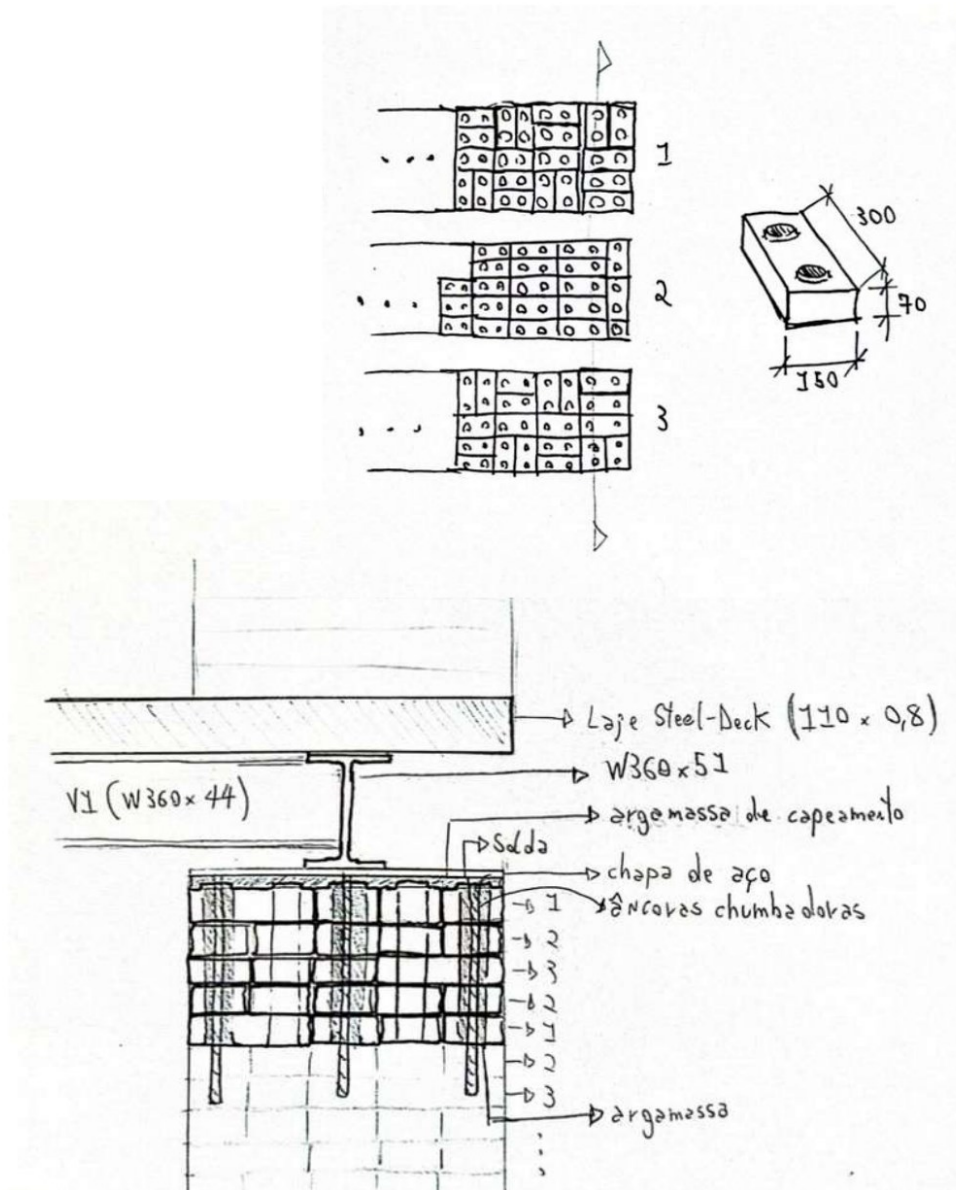 1
2
3
300
70
150
Laje Steel-Deck (110 x 0,8)
W360x51
V1 (W360x44)
argamassa de capeamento
Solda
chapa de aço
âncoras chumbadoras
1
2
3
2
1
2
3
argamassa